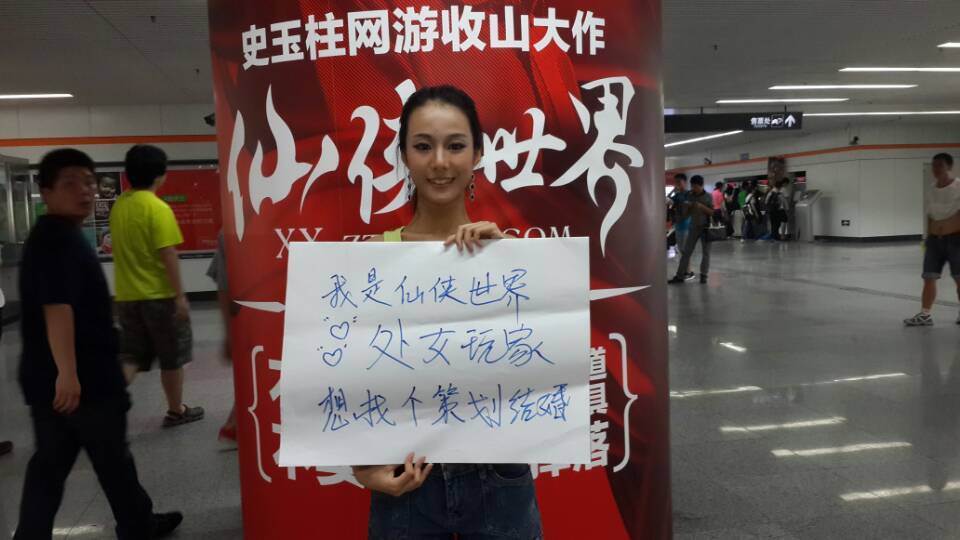 史玉柱网游收山大作
仙侠世界
售票处
我是仙侠世界
处女玩家
想找个策划结婚